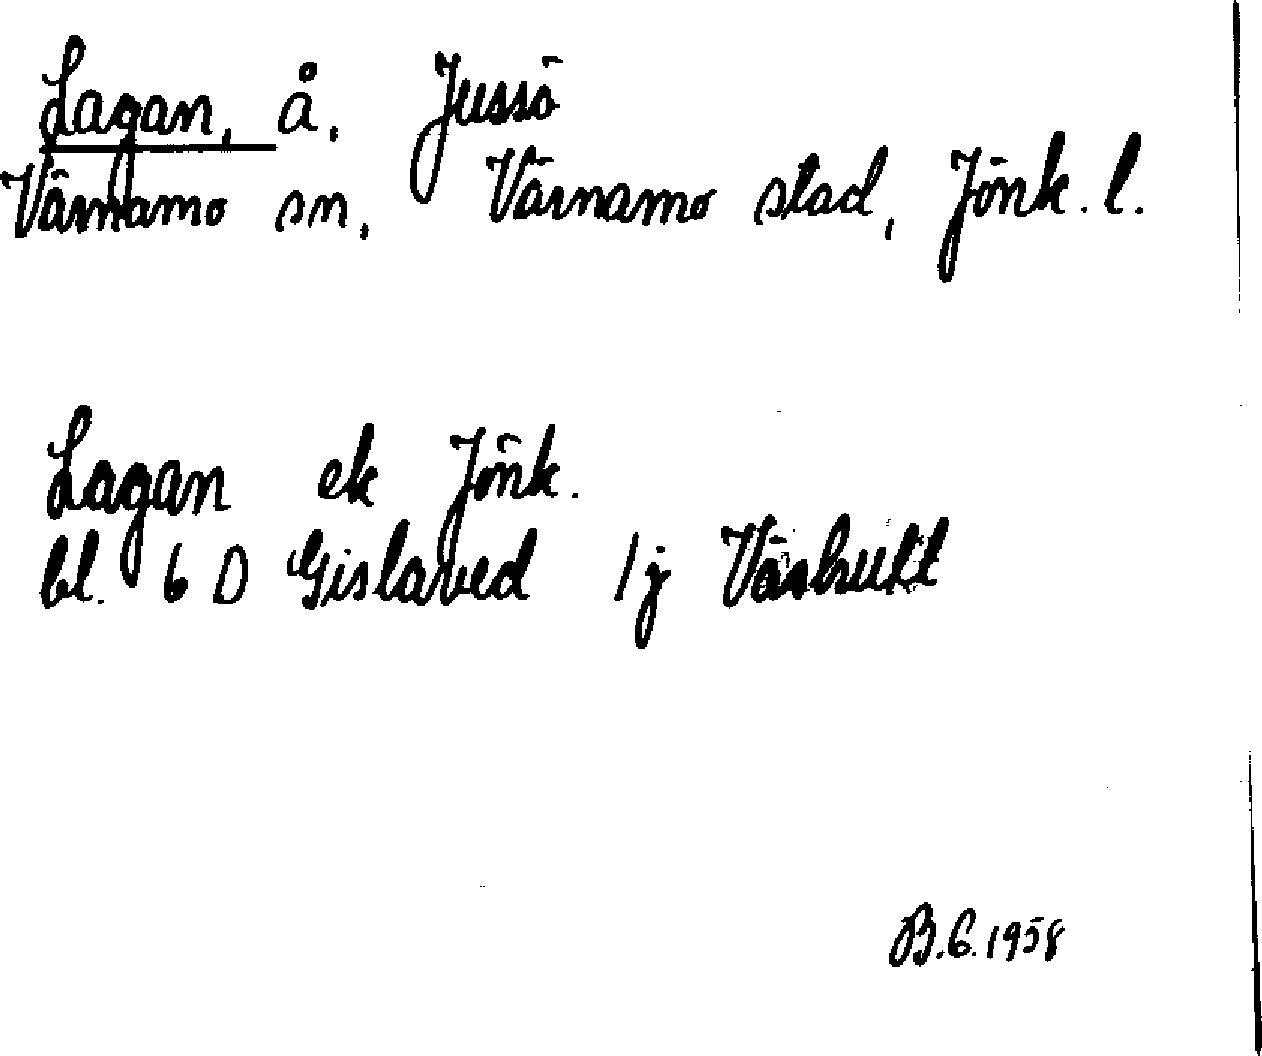 Lagan, å. Jussö
Värnamo sn. Värnamo stad, Jönk. l.
Lagan ek Jönk.
bl. 6 D Gislaved 1j Värhult
B.G. 1958